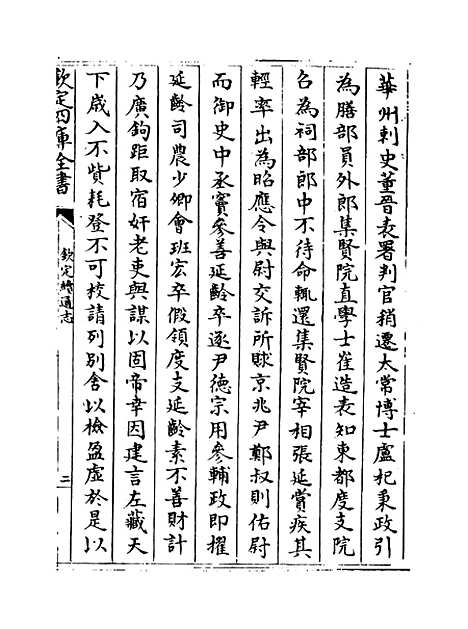 華州刺史董晉表署判官稍遷太常博士盧杞秉政引
為膳部員外郎集賢院直學士崔造表知東都度支院
召為祠部郎中不待命輒還集賢院宰相張延賞疾其
輕率出為昭應令與尉交訴所賕京兆尹鄭叔則佑尉
而御史中丞竇參善延齡卒逐尹德宗用參輔政即擢
延齡司農少卿會班宏卒假領度支延齡素不善財計
乃廣鉤距取宿奸老吏與謀以固帝幸因建言左藏天
下歲入不貲耗登不可校請列別舍以檢盈虛於是以
欽定四庫全書
欽定續通志
三